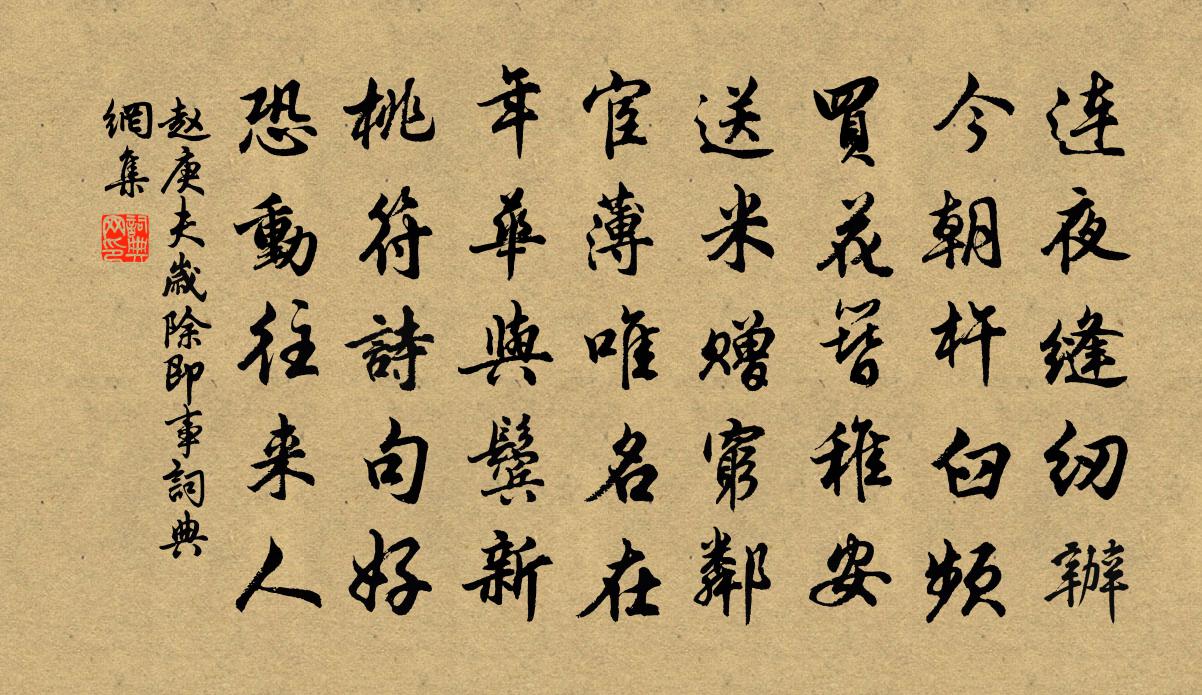 連夜縫紉辦
今朝杵臼頻
買花簪稚安
送米贈窮鄰
宦薄唯名在
年華與鬢新
桃符詩句好
恐動往来人
赵庚夫歲除即事詞典
網集
詞典网印